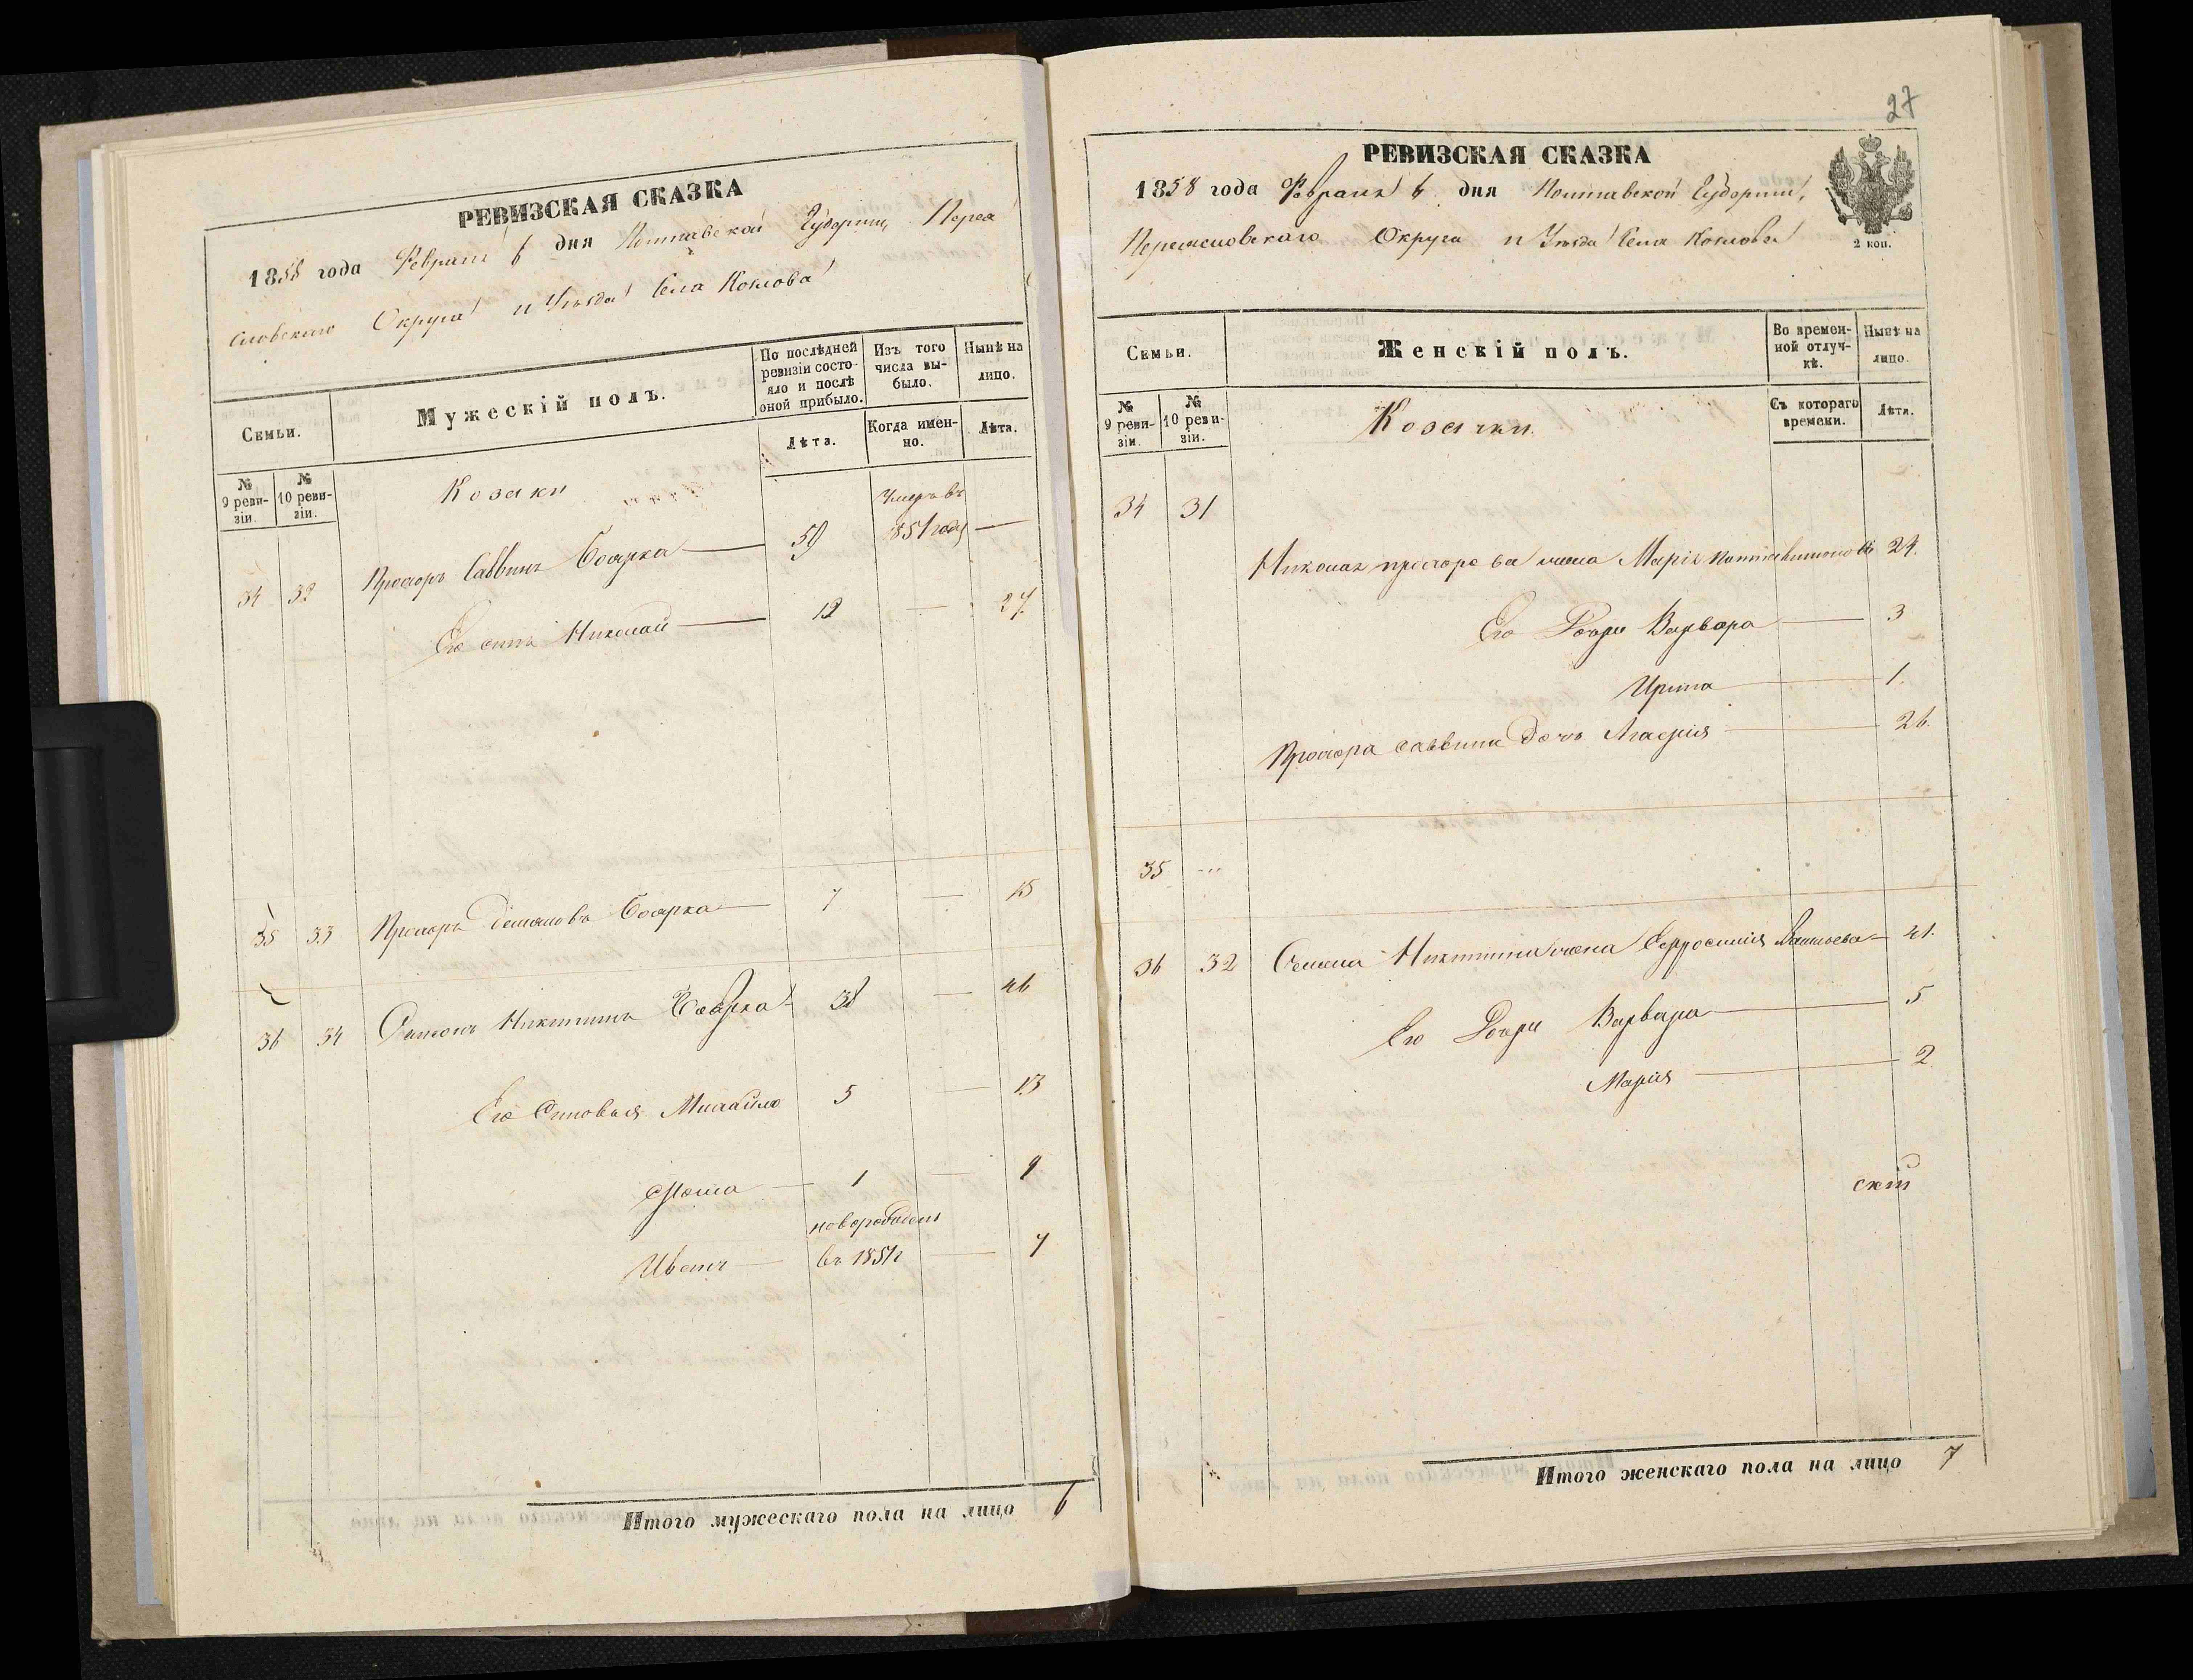 РЕВИЗСКАЯ СКАЗКА
1858 года Февраля 6 дня Полтавской Губернии, Перея
словскаго Округа и Уѣзда Села Козлова
Семьи.
Мужескій полъ.
По послѣдней ревизіи состояло и послѣ оной прибыло.
Изъ того числа выбыло.
Нынѣ на лицо.
№ 9 ревизіи.
№ 10 ревизіи.
Лѣта.
Когда именно.
Лѣта.
Козаки
34 32 Прохоръ Саввинъ Боярка — 59 Умеръ въ 1851 году —
Его сынъ Николай — 12 — 27.
35 33 Прохоръ Боярка — 7 — 15
36 34 Никитинъ Боярка 38 — 46
Его Сыновья Михайло 5 — 13
Фома — 1 — 9
Иванъ — новорожденъ въ 1851г — 7
Итого мужескаго пола на лицо 6
27
РЕВИЗСКАЯ СКАЗКА
1858 года Февраля 6 дня Полтавской Губернии,
Переясловскаго Округа и Уѣзда Села Козлова
2 коп.
Семьи.
Женскій полъ.
Во временной отлучкѣ.
Нынѣ на лицо.
№ 9 ревизіи.
№ 10 ревизіи.
Съ котораго времени.
Лѣта.
Козачки
34 31
Николая Прохорова жена Марія 24.
Его Дочери Варвара — 3
Ирина — 1.
Прохора Саввина дочь Агафія — 26.
35 ...
36 32 Никитина жена Ефросинія — 41.
Его Дочери Варвара — 5
Марія — 2
скій
Итого женскаго пола на лицо 7